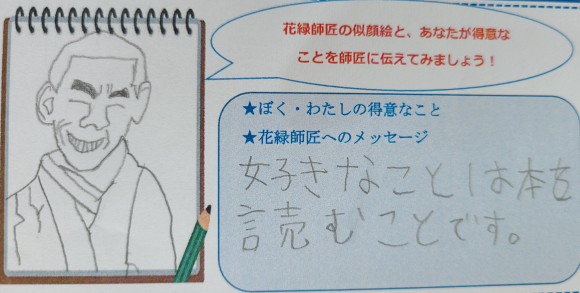 花緑師匠の似顔絵と、あなたが得意な
ことを師匠に伝えてみましょう！
★ぼく・わたしの得意なこと
★花緑師匠へのメッセージ
好きなことは本を
読むことです。